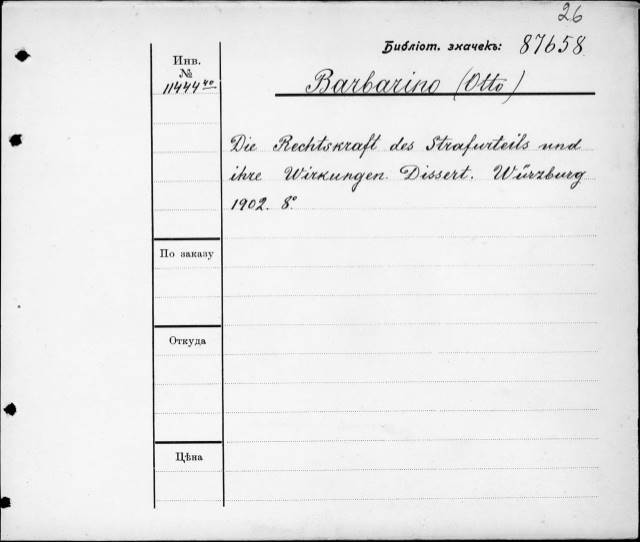 26
Библіот. значекъ: 87658
Инв.
№
11444 40
Barbarino (Otto)
Die Rechtskraft des Strafurteils und
ihre Wirkungen. Dissert. Würzburg
1902. 8°
По заказу
Откуда
Цѣна